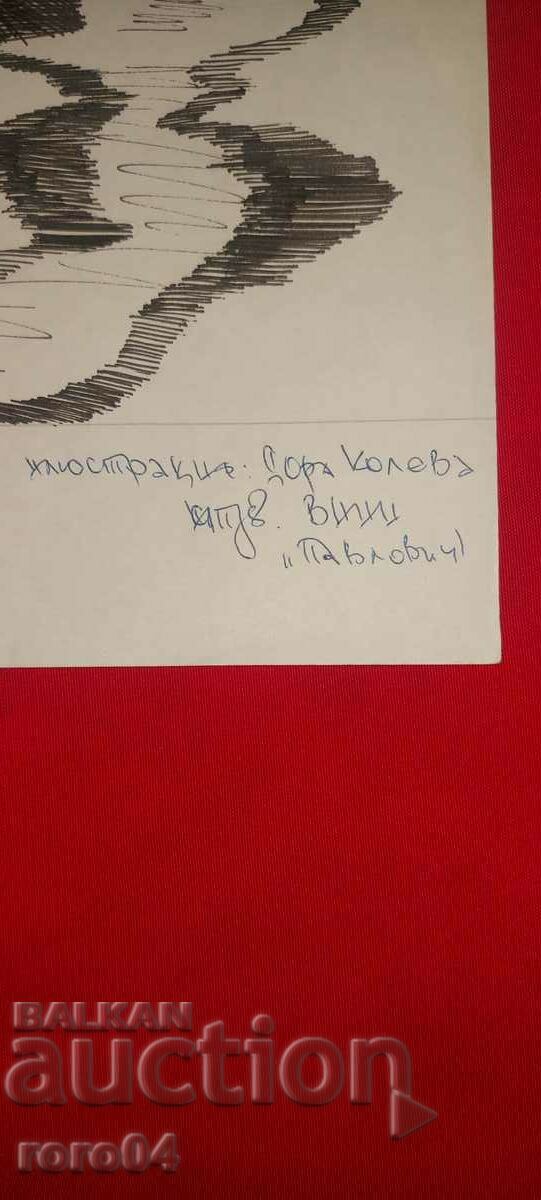 илюстрация: Дора Колева
студ. ВИИИ
„Павлович"
BALKAN
auction
roro04